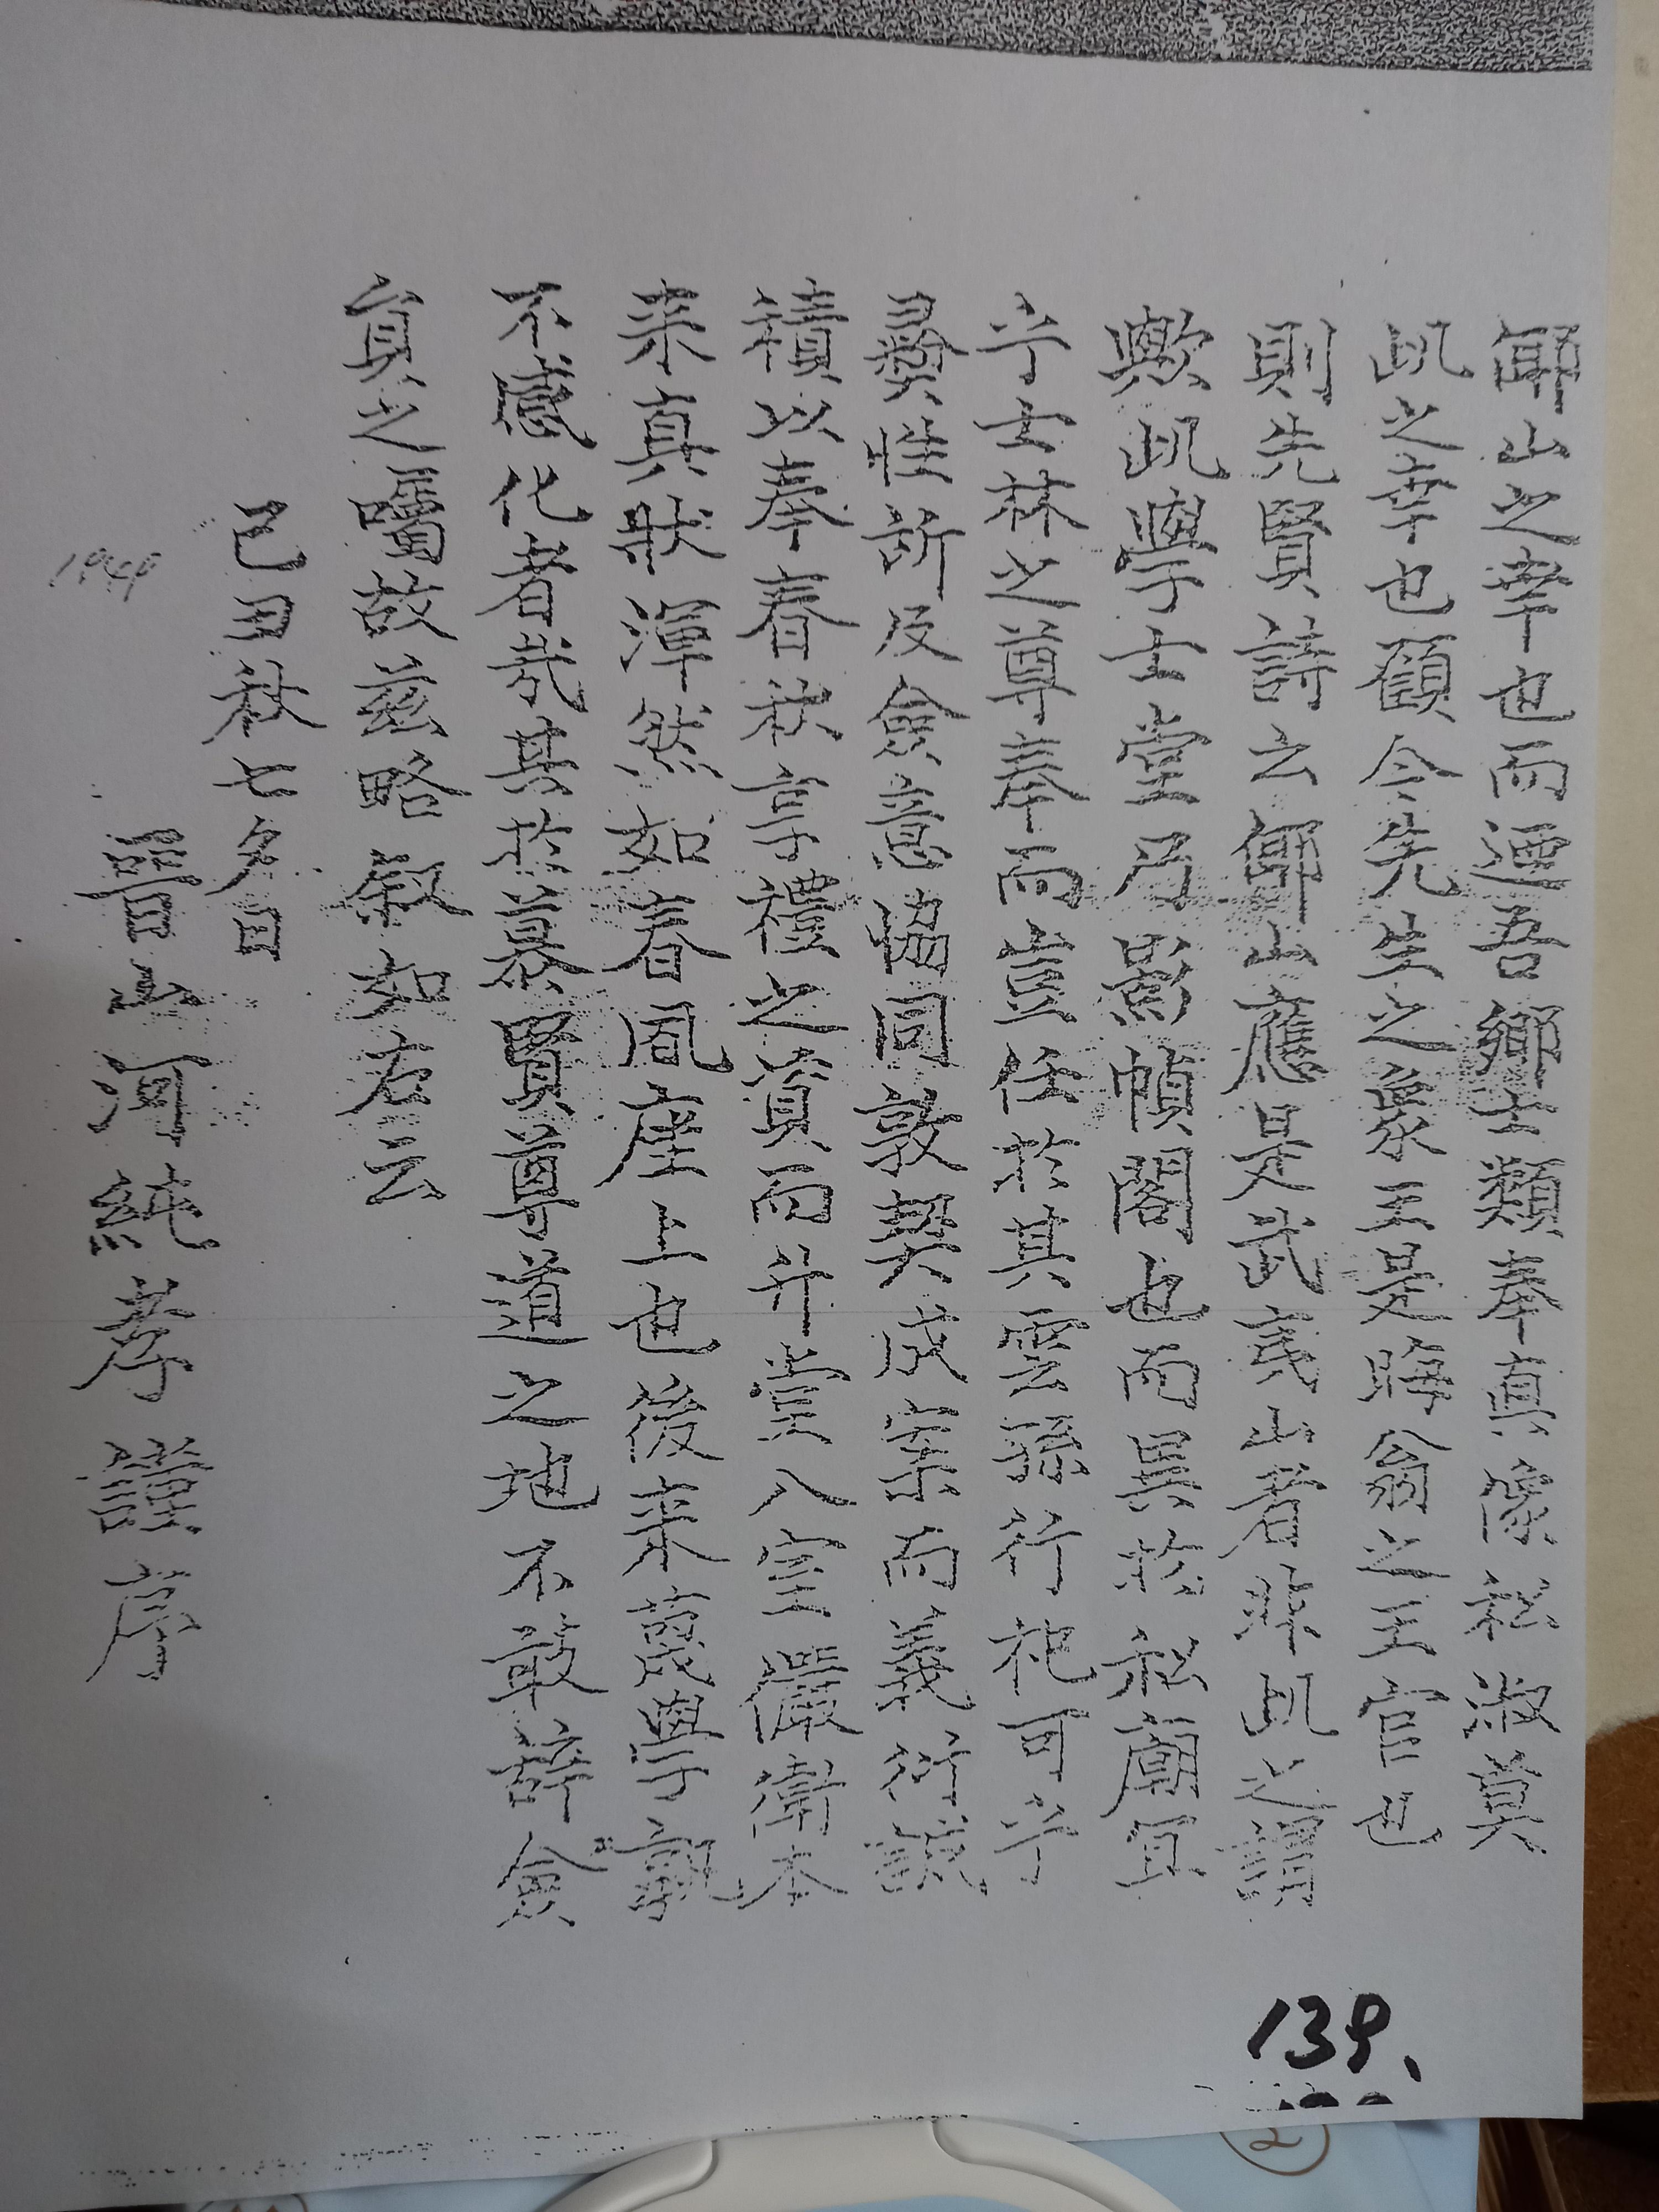 山之幸也而迺吾鄉士類奉真像於
此之幸也顧今先生之象主是晦翁之主宦也
則先賢詩云 山應是武夷山者非此之謂
歟此學士堂乃影幀閣也而異於祠廟宜
乎士林之尊奉而豈任於其雲孫行祀可乎
彝性所及僉意協同敦契成案而義衍誠
積以奉春秋享禮之資而升堂入室儼衛本
來真狀渾然如春風座上也後來蒙學孰
不感化者哉其於慕賢尊道之地不敢辭僉
員之囑故茲略叙如右云
己丑秋七夕日
晉山河純孝謹序
1949
139.